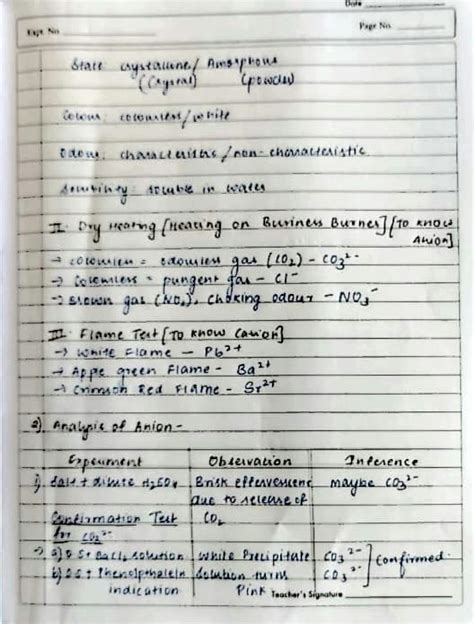 Date
Expt. No.
Page No.
State crystalline/ Amorphous
(Crystal) (powder)
Colour: colourless/white
Odour: characteristic/non-characteristic
Solubility: soluble in water
II. Dry Heating [Heating on Buriness Burner] [To know Anion]
→ colourless = odourless gas (CO₂) – CO₃²⁻
→ Colourless = pungent gas – Cl⁻
→ Brown gas (NO₂), choking odour – NO₃⁻
III. Flame Test [To know Cation]
→ White Flame – Pb²⁺
→ Appe green Flame – Ba²⁺
→ Crimson Red Flame – Sr²⁺
2) Analysis of Anion –
Experiment Observation Inference
i) Salt + dilute H₂SO₄ Brisk effervescence maybe CO₃²⁻
due to release of
Confirmation Test CO₂
for CO₃²⁻
→ a) O.S + BaCl₂ solution White Precipitate CO₃²⁻ ] Confirmed
b) O.S + Phenolphalein Solution turns CO₃²⁻
indication Pink
Teacher's Signature